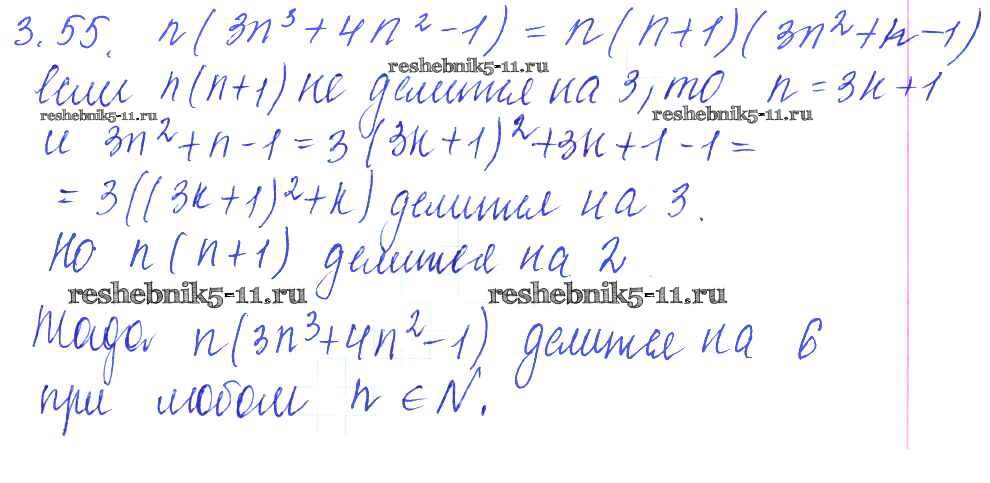 3.55. n(3n³+4n²-1) = n(n+1)(3n²+n-1)
reshebnik5-11.ru
если n(n+1) не делится на 3, то n = 3k+1
reshebnik5-11.ru reshebnik5-11.ru
и 3n²+n-1 = 3(3k+1)²+3k+1-1 =
= 3((3k+1)²+k) делится на 3.
Но n(n+1) делится на 2
reshebnik5-11.ru reshebnik5-11.ru
Тогда n(3n³+4n²-1) делится на 6
при любом n ∈ N.